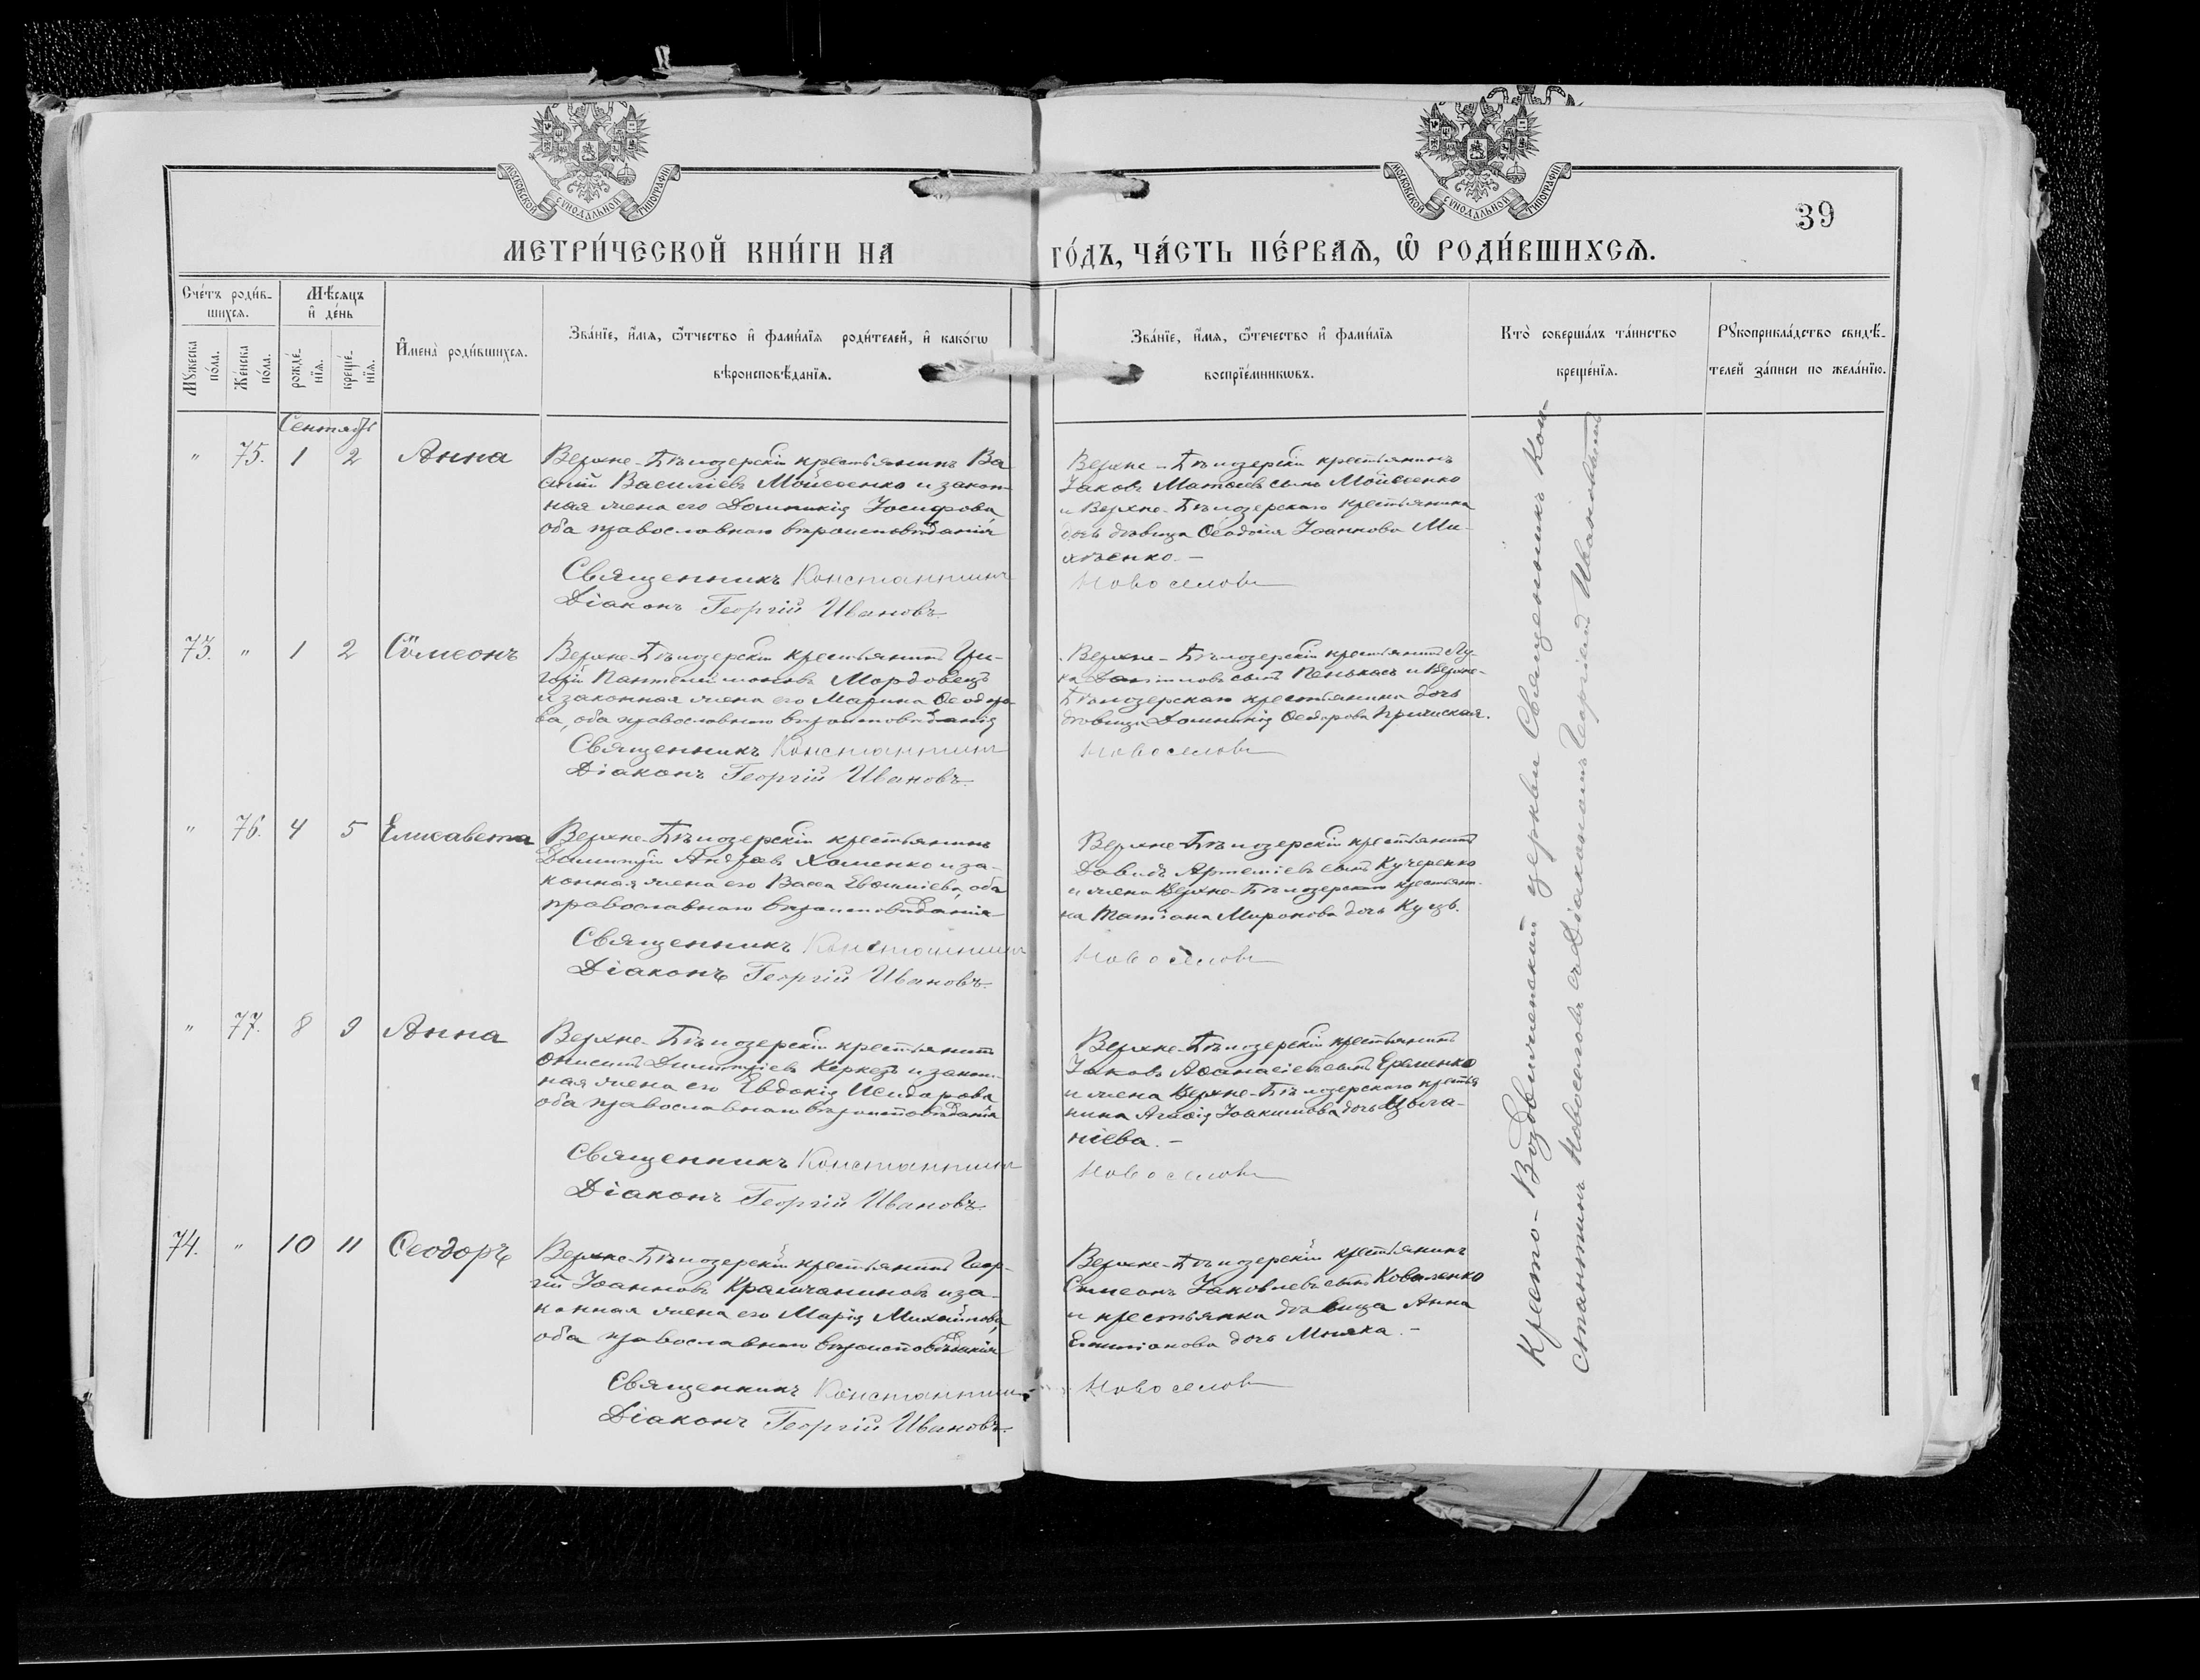 МОСКОВСКОЙ СѴНОДАЛЬНОЙ ТИПОГРАФІИ
МОСКОВСКОЙ СѴНОДАЛЬНОЙ ТИПОГРАФІИ
39
МЕТРИ́ЧЕСКОЙ КНИ́ГИ НА ГО́ДЪ, ЧА́СТЬ ПЕ́РВАѦ, Ѡ РОДИ́ВШИХСѦ.
Сче́тъ роди́в-
шихсѧ.
Мꙋ́жеска по́ла.
Же́нска по́ла.
Мѣ́сяцъ
и де́нь
рожде́-нїѧ.
креще́-нїѧ.
И҆мена̀ роди́вшихсѧ.
Зва́нїе, и҆́мѧ, ѻ҆́тчество и҆ фами́лїѧ роди́телей, и҆ како́гѡ
вѣроисповѣ́данїѧ.
Зва́нїе, и҆́мѧ, ѻ҆́течество и҆ фами́лїѧ
воспрїе́мникѡвъ.
Кто̀ соверша́лъ та́инство
креще́нїѧ.
Рꙋкоприкла́дство свидѣ́-
телей за́писи по жела́нїю.
Сентябрь
" 75. 1 2 Анна
Верхне-Бѣлозерскій крестьянинъ Ва
силій Василіевъ Мойсеенко и закон-
ная жена его Домникія Іосифова
оба православнаго вѣроисповѣданія
Священникъ Константинъ
Діаконъ Георгій Ивановъ.
Верхне-Бѣлозерскій крестьянинъ
Іаковъ Матѳіевъ сынъ Мойсеенко
и Верхне-Бѣлозерскаго крестьянина
дочь дѣвица Ѳеодосія Іоаннова Ми-
хѣенко.-
Новоселовъ
73. " 1 2 Сѵмеонъ
Верхне-Бѣлозерскій крестьянинъ Гри-
горій Пантелиимоновъ Мордовецъ
и законная жена его Марина Ѳеодоро-
ва, оба православнаго вѣроисповѣданія
Священникъ Константинъ
Діаконъ Георгій Ивановъ.
Верхне-Бѣлозерскій крестьянинъ Лу-
ка Даніиловъ сынъ и Верхне-
Бѣлозерскаго крестьянина дочь
дѣвица Домникія Ѳеодорова
Новоселовъ
" 76. 4 5 Елисавета
Верхне-Бѣлозерскій крестьянинъ
Димитрій Андреевъ Хоменко и за-
конная жена его Васса Евѳиміева, оба
православнаго вѣроисповѣданія
Священникъ Константинъ
Діаконъ Георгій Ивановъ.
Верхне-Бѣлозерскій крестьянинъ
Давидъ Артеміевъ сынъ Кучеренко
и жена Верхне-Бѣлозерскаго крестьяни-
на Татіана Миронова дочь
Новоселовъ
" 77. 8 9 Анна
Верхне-Бѣлозерскій крестьянинъ
Онисимъ Димитріевъ и закон-
ная жена его Евдокія Исидорова
оба православнаго вѣроисповѣданія
Священникъ Константинъ
Діаконъ Георгій Ивановъ.
Верхне-Бѣлозерскій крестьянинъ
Іаковъ Аѳанасіевъ сынъ Еременко
и жена Верхне-Бѣлозерскаго крестья
нина Агафія Іоакимова дочь
Новоселовъ
74. " 10 11 Ѳеодоръ
Верхне-Бѣлозерскій крестьянинъ Геор-
гій Іоанновъ и за-
конная жена его Марія Михайлова,
оба православнаго вѣроисповѣданія
Священникъ Константинъ
Діаконъ Георгій Ивановъ.
Верхне-Бѣлозерскій крестьянинъ
Симеонъ Іаковлевъ сынъ Коваленко
и крестьянка дѣвица Анна
Емиліанова дочь
Новоселовъ
Кресто-Воздвиженской церкви Священникъ Кон-
стантинъ Новоселовъ съ Діакономъ Георгіемъ Ивановымъ